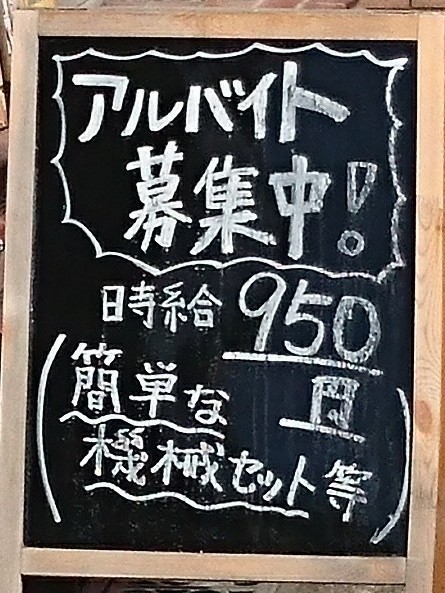 アルバイト
募集中!
時給950
円
(簡単な
機械セット等)